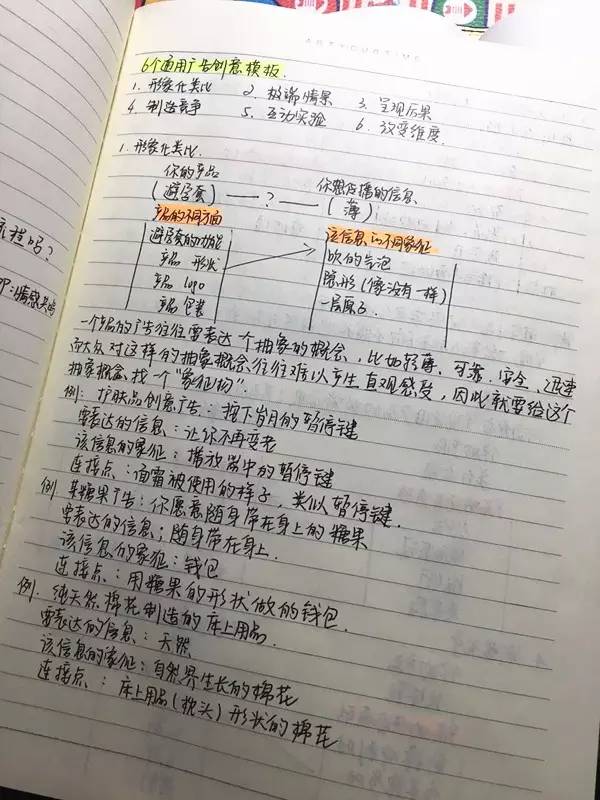 ARTYOURTIME
6个通用广告创意模板.
1. 形象化类比 2. 极端情景 3. 呈现后果
4. 制造竞争 5. 互动实验 6. 改变维度.
1. 形象化类比.
你的产品 你想传播的信息
(避孕套) —— ? —— (薄)
产品的不同方面 该信息的不同象征
避孕套的功能 吹的气泡
产品 形状 隐形(像没有一样)
产品 logo 一层原子.
产品 包装
一个产品的广告往往要表达一个抽象的概念, 比如轻薄、可靠、安全、迅速
而大众对这样的抽象概念往往难以产生直观感受, 因此就要给这个
抽象概念找一个“象征物”.
例: 护肤品创意广告: 按下岁月的暂停键
要表达的信息: 让你不再变老
该信息的象征: 播放器中的暂停键
连接点: 面霜被使用的样子, 类似暂停键.
例. 某糖果广告: 你愿意随身带在身上的糖果
要表达的信息; 随身带在身上.
该信息的象征: 钱包
连接点: 用糖果的形状做的钱包
例. 纯天然棉花制造的床上用品.
要表达的信息: 天然
该信息的象征: 自然界生长的棉花
连接点: 床上用品(枕头)形状的棉花
程吗?